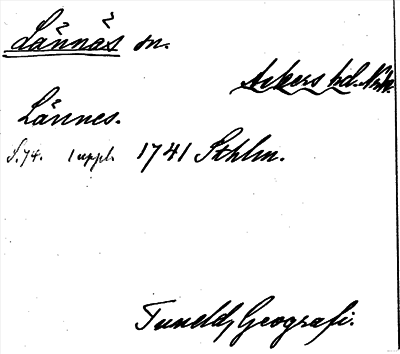 Lännäs sn.
Åkers hd.
Lännes.
S. 74. 1 uppl. 1741 Sthlm.
Tuneld, Geografi.